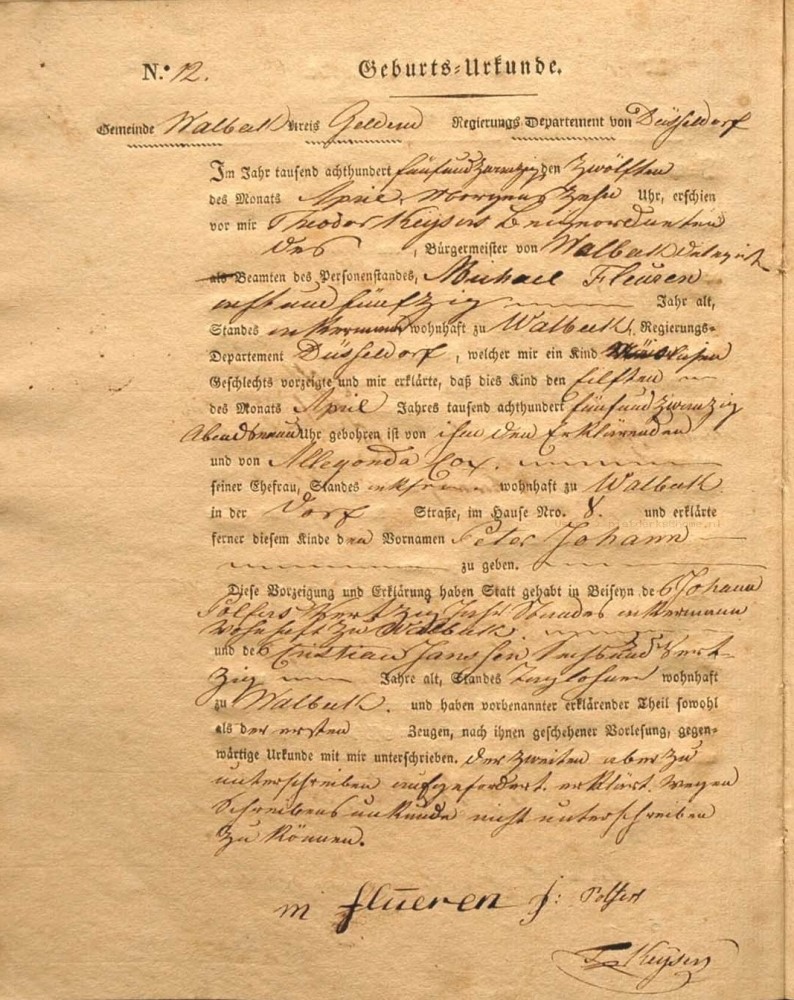 N.º 12. Geburts-Urkunde.
Gemeinde Walbeck Kreis Geldern Regierungs Departement von Düsseldorf
Im Jahr tausend achthundert fünfundzwanzig den zwölften
des Monats April, Morgens zehn Uhr, erschien
vor mir Theodor Keysers Beigeordneten
des , Bürgermeister von Walbeck delegirt
als Beamten des Personenstandes, Michael Fleuren
acht und fünfzig Jahr alt,
Standes Ackermann wohnhaft zu Walbeck, Regierungs-
Departement Düsseldorf, welcher mir ein Kind
Geschlechts vorzeigte und mir erklärte, daß dies Kind den eilften
des Monats April Jahres tausend achthundert fünfundzwanzig
Abends neun Uhr gebohren ist von ihm dem Erklärenden
und von Allegonda Cox.
seiner Ehefrau, Standes wohnhaft zu Walbeck
in der Dorf Straße, im Hause Nro. 8. und erklärte
ferner diesem Kinde den Vornamen Peter Johann
zu geben.
Diese Vorzeigung und Erklärung haben Statt gehabt in Beiseyn des Johann
Jahr Standes Ackermann
wohnhaft zu Walbeck.
und des Cristian Janssen sechsund viert-
zig Jahre alt, Standes Taglöhner wohnhaft
zu Walbeck. und haben vorbenannter erklärender Theil sowohl
als der ersten Zeugen, nach ihnen geschehener Vorlesung, gegen-
wärtige Urkunde mit mir unterschrieben. der zweiten aber zu
unterschreiben aufgefordert. erklärt. wegen
Schreibens unkunde nicht unterschreiben
zu können.
m flueren j:
T Keysers